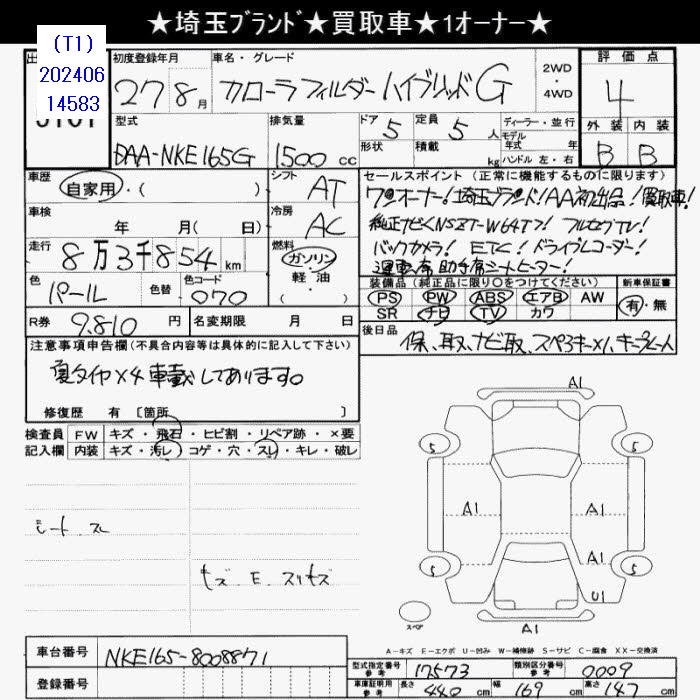 ★埼玉ﾌﾞﾗﾝﾄﾞ★買取車★1オーナー★
(T1)
202406
14583
初度登録年月
27 8月
車名・グレード
カローラフィルダーハイブリッドG
2WD
・
4WD
評価点
4
外装 内装
B B
型式
DAA-NKE165G
排気量
1500 cc
ドア 5
定員 5 人
形状
積載 kg
ディーラー・並行
モデル
年式 年
ハンドル 左・右
車歴
自家用・( )
シフト
AT
車検
年 月( 日)
冷房
AC
走行
8万3千854 km
燃料
ガソリン
・
軽・油
( )
色
パール
色替
色コード
070
R券
9.810 円
名変期限 月 日
セールスポイント (正常に機能するものに限ります)
ワンオーナー!埼玉ブランド!AA初出品!買取車!
純正ナビ<NSZT-W64T>! フルセグTV!
バックカメラ! ETC! ドライブレコーダー!
運転席助手席シートヒーター!
装備品 (純正品に限り〇をつけてください)
PS PW ABS エアB AW
SR ナビ TV カワ
新車保証書
有・無
後日品
保、取、ナビ取、スペアキー×1、キープレート
注意事項申告欄(不具合内容等は具体的に記入して下さい)
夏タイヤ×4 車載してあります。
修復歴 有 [箇所 ]
検査員
記入欄
FW キズ・飛石・ヒビ割・リペア跡・×要
内装 キズ・汚レ・コゲ・穴・スレ・キレ・破レ
シート スレ
キズ.E.スリキズ
A1
5
5
A1
A1
A1
5
5
U1
A1
スペア
A-キズ E-エクボ U-凹み W-補修跡 S-サビ C-腐食 XX-交換済
車台番号
NKE165-8008871
登録番号
型式指定番号
参考
17573
類別区分番号
参考
0009
車庫証明用
参考
長さ 440 cm
幅 169 cm
高さ 147 cm